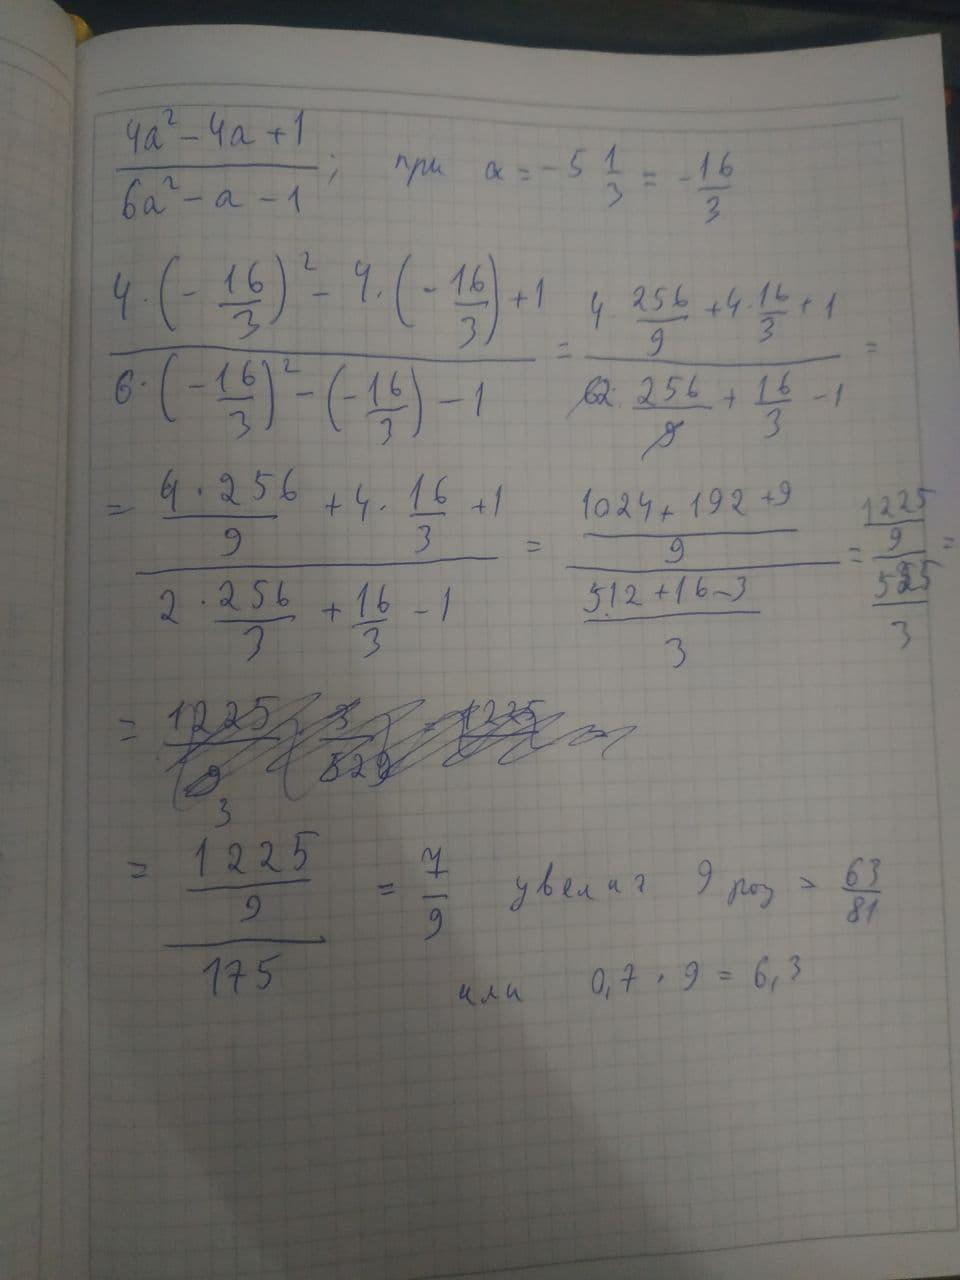 (4a² - 4a + 1)/(6a² - a - 1); при a = -5 1/3 = -16/3
(4·(-16/3)² - 4·(-16/3) + 1)/(6·(-16/3)² - (-16/3) - 1) = (4·256/9 + 4·16/3 + 1)/(62·256/9 + 16/3 - 1) =
= (4·256/9 + 4·16/3 + 1)/(2·256/3 + 16/3 - 1) = ((1024 + 192 + 9)/9)/((512 + 16 - 3)/3) = (1225/9)/(525/3) =
= (1225/9)/175 = 7/9 увелич 9 раз = 63/81
или 0,7 · 9 = 6,3